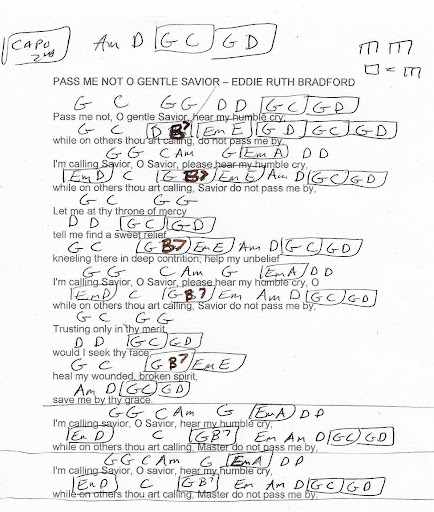 CAPO 2nd Am D G C G D
m m
□ = m
PASS ME NOT O GENTLE SAVIOR – EDDIE RUTH BRADFORD
G C G G D D G C G D
Pass me not, O gentle Savior, hear my humble cry;
G C D B7 Em E G D G C G D
while on others thou art calling, do not pass me by.
G G C Am G Em A D D
I'm calling Savior, O Savior, please hear my humble cry,
Em D C G B7 Em E Am D G C G D
while on others thou art calling, Savior do not pass me by,
G C G G
Let me at thy throne of mercy
D D G C G D
tell me find a sweet relief,
G C G B7 Em E Am D G C G D
kneeling there in deep contrition; help my unbelief
G G C Am G Em A D D
I'm calling Savior, O Savior, please hear my humble cry, O
Em D C G B7 Em Am D G C G D
while on others thou art calling, Savior do not pass me by,
G C G G
Trusting only in thy merit,
D D G C G D
would I seek thy face;
G C G B7 Em E
heal my wounded, broken spirit,
Am D G C G D
save me by thy grace.
G G C Am G Em A D D
I'm calling savior, O Savior, hear my humble cry,
Em D C G B7 Em Am D G C G D
while on others thou art calling, Master do not pass me by,
G G C Am G Em A D D
I'm calling Savior, O Savior, hear my humble cry,
Em D C G B7 Em Am D G C G D
while on others thou art calling, Master do not pass me by,